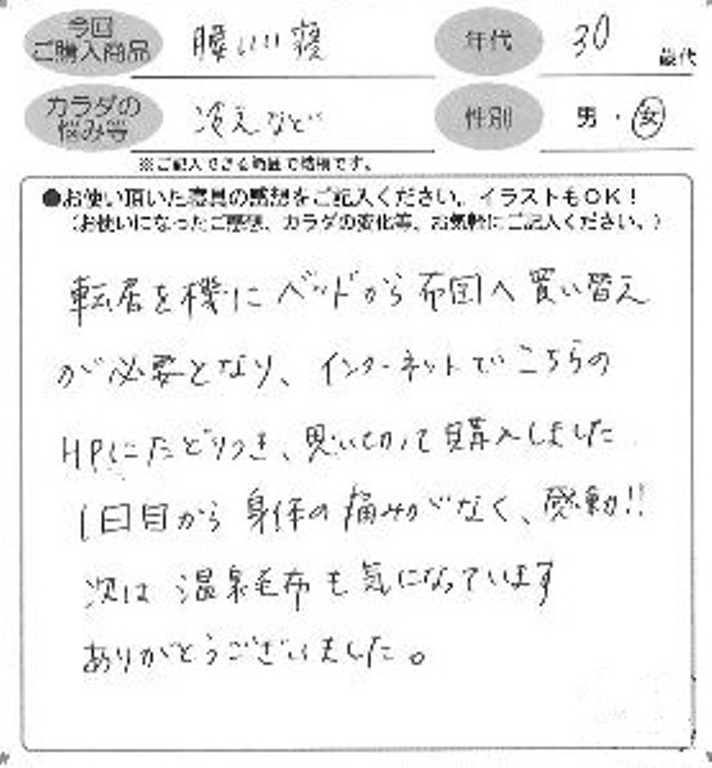 今回
ご購入商品
腰いい寝
年代
30
歳代
カラダの
悩み等
冷えなど
性別
男・女
※ご記入できる範囲で結構です。
●お使い頂いた寝具の感想をご記入ください。イラストもOK!
(お使いになったご感想、カラダの変化等、お気軽にご記入ください。)
転居を機にベッドから布団へ買い替え
が必要となり、インターネットでこちらの
HPにたどりつき、思いきって購入しました
1日目から身体の痛みがなく、感動!!
次は温泉毛布も気になっています
ありがとうございました。